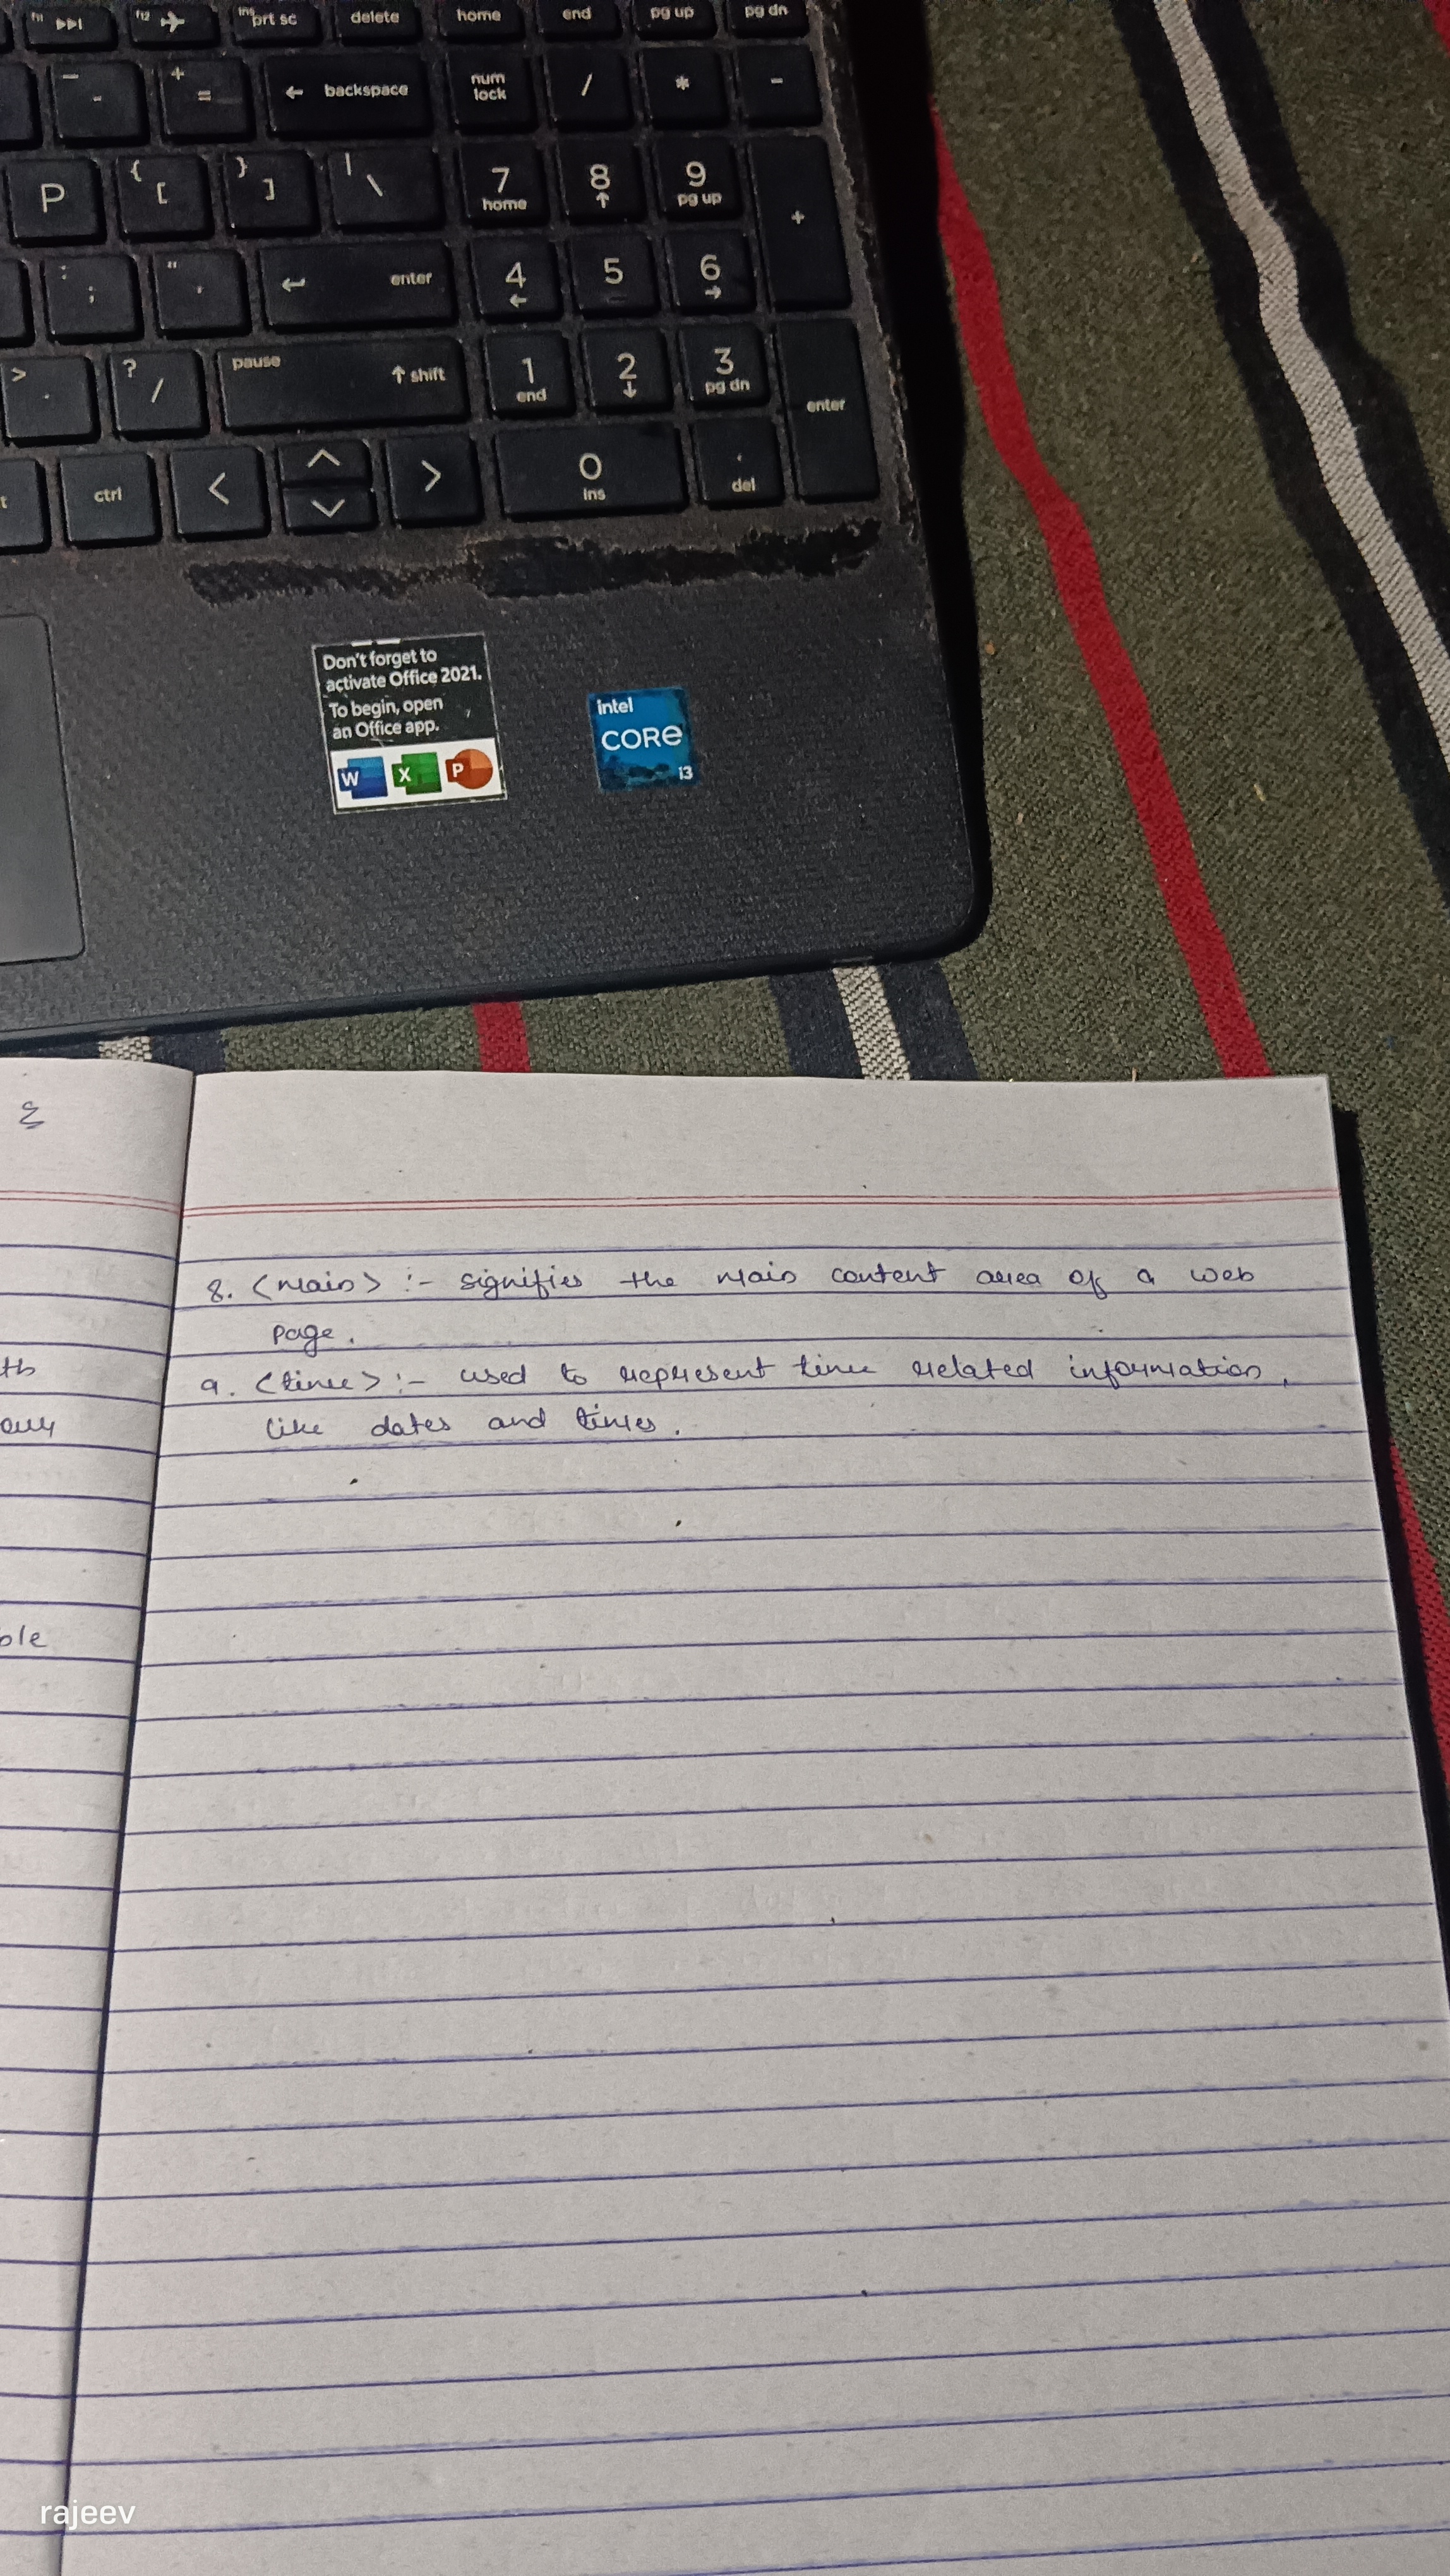 f11 ▶▶| f12 ins prt sc delete home end pg up pg dn
- + = ← backspace num lock / * -
P { [ } ] | \ 7 home 8 ↑ 9 pg up +
: ; " ' ↵ enter 4 ← 5 6 →
> . ? / pause ↑ shift 1 end 2 ↓ 3 pg dn enter
ctrl < ^ > 0 ins . del
Don't forget to
activate Office 2021.
To begin, open
an Office app.
W X P
intel
CORE
i3
8. <main> :- signifies the main content area of a web
page.
9. <time> :- used to represent time related information,
like dates and times.
rajeev